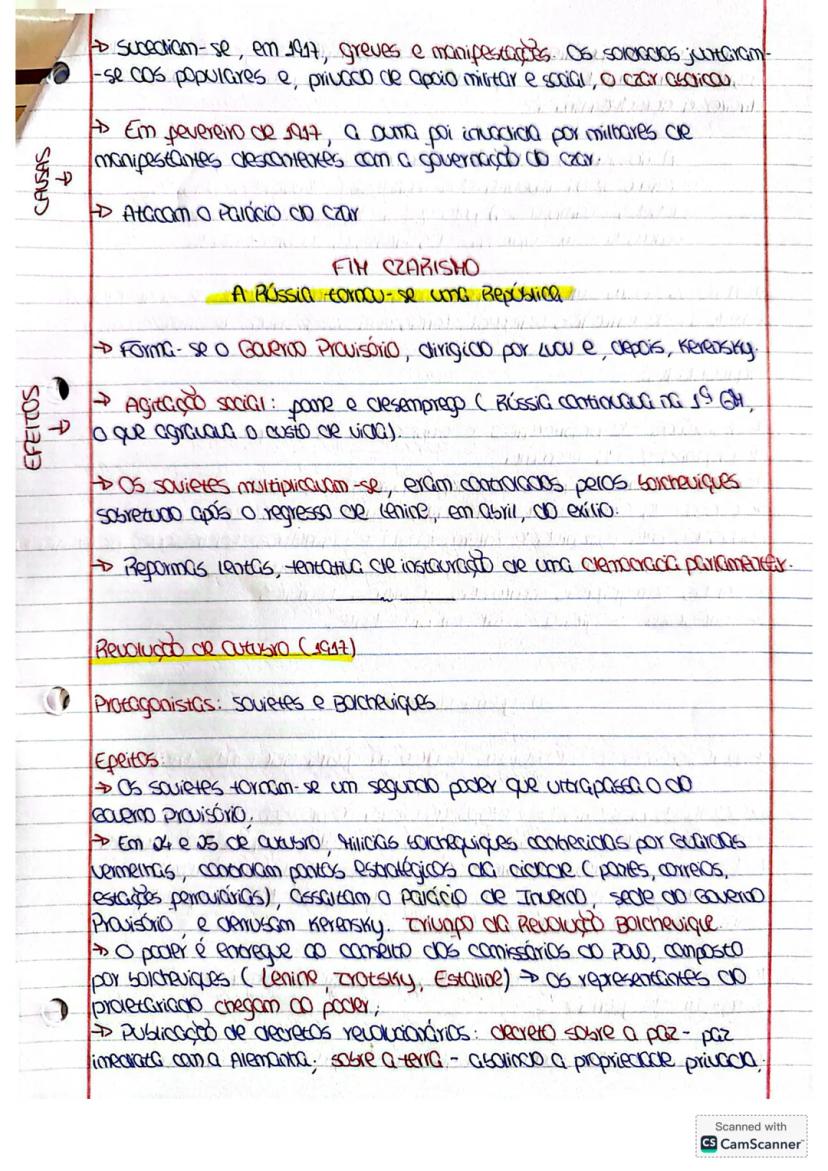 → Sucediam-se, em 1917, greves e manifestações. Os soldados juntaram-
-se aos populares e, privado de apoio militar e social, o czar abdicou.
→ Em fevereiro de 1917, a Duma foi invadida por milhares de
manifestantes descontentes com a governação do czar.
CAUSAS →
→ Atacam o Palácio do czar
FIM CZARISMO
A Rússia tornou-se uma República
→ Forma-se o Governo Provisório, dirigido por Lvov e, depois, Kerensky.
EFEITOS →
→ Agitação social: fome e desemprego (Rússia continuava na 1ª GM,
o que agravava o custo de vida).
→ Os sovietes multiplicavam-se, eram controlados pelos bolcheviques
sobretudo após o regresso de Lenine, em abril, do exílio.
→ Reformas lentas, tentativa de instauração de uma democracia parlamentar.
Revolução de outubro (1917)
Protagonistas: sovietes e Bolcheviques
Efeitos:
→ Os sovietes tornam-se um segundo poder que ultrapassa o do
Governo Provisório.
→ Em 24 e 25 de outubro, Milícias bolcheviques conhecidas por Guardas
vermelhas, controlam pontos estratégicos da cidade (pontes, correios,
estações ferroviárias), assaltam o Palácio de Inverno, sede do Governo
Provisório, e derrubam Kerensky. Triunfo da Revolução Bolchevique.
→ O poder é entregue ao conselho dos comissários do Povo, composto
por bolcheviques (Lenine, Trotsky, Estaline) → os representantes do
proletariado chegam ao poder;
→ Publicação de decretos revolucionários: decreto sobre a paz - paz
imediata com a Alemanha; sobre a terra - abolindo a propriedade privada;
Scanned with
CS CamScanner